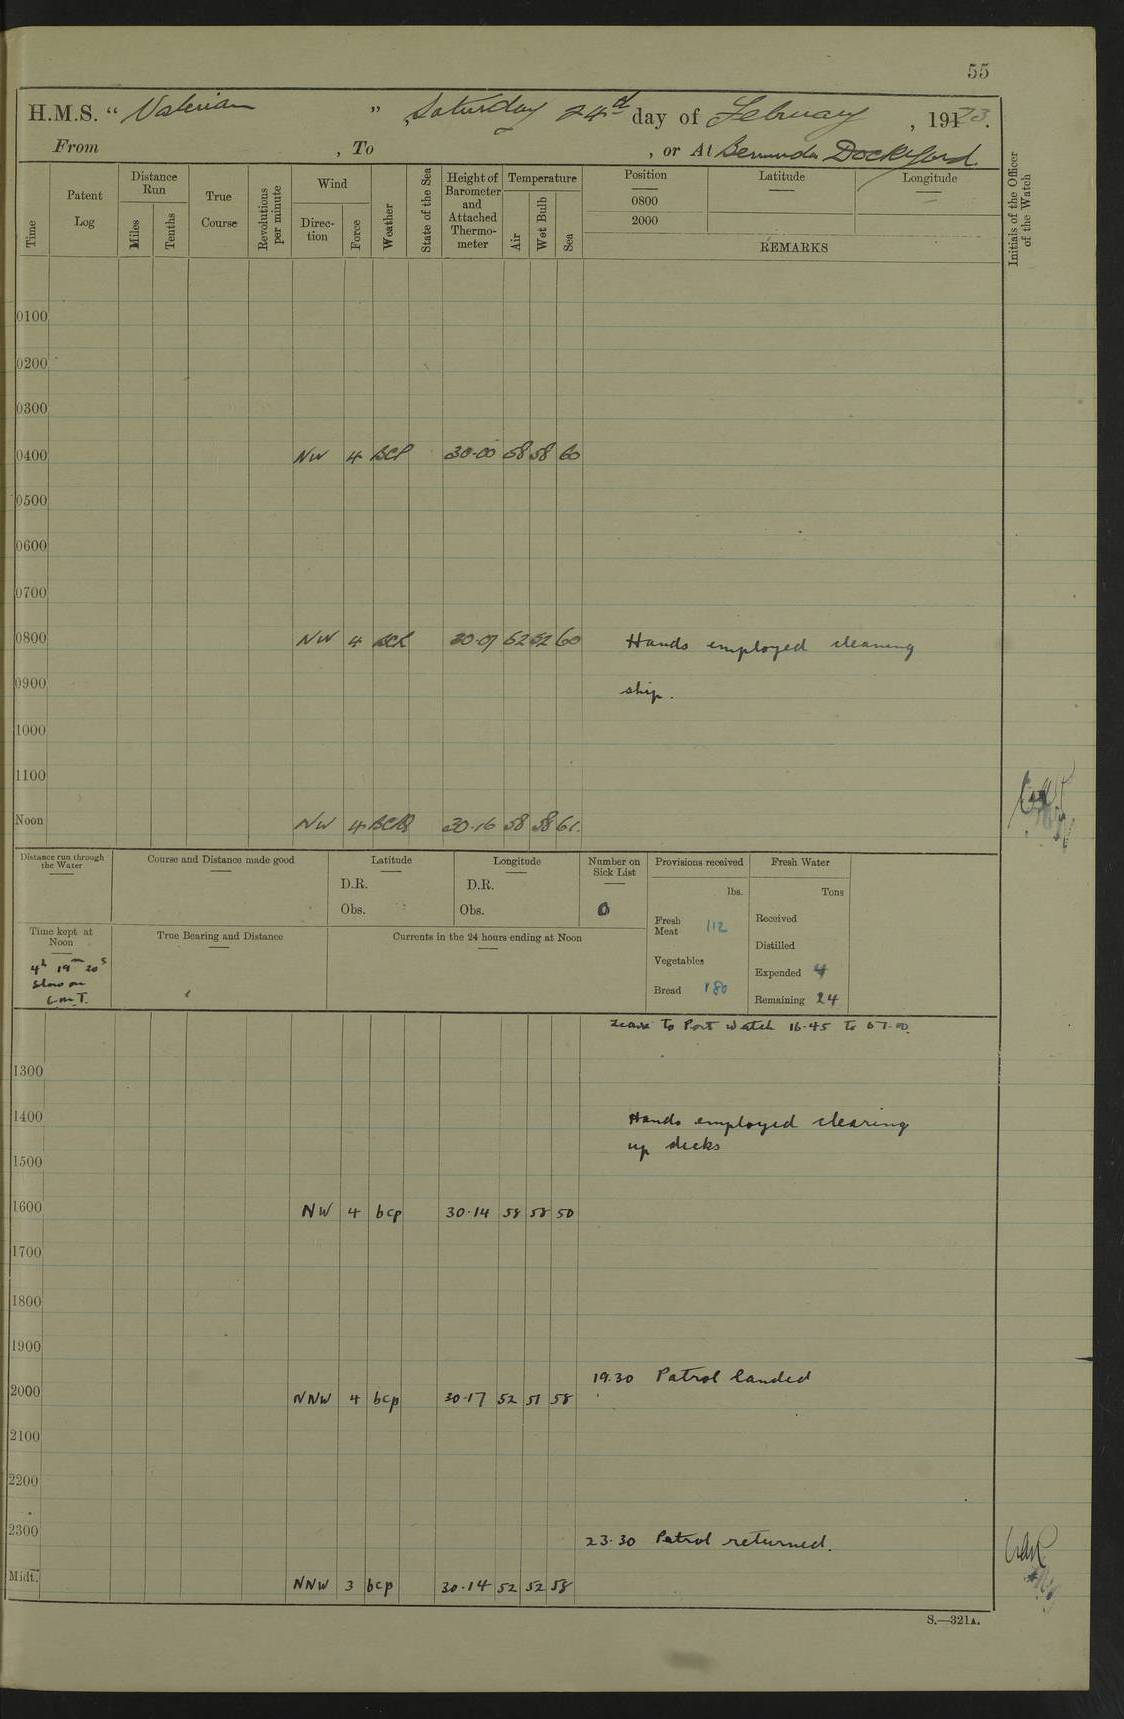 55
H.M.S. “ Valerian ” Saturday 24th day of February , 1923.
From , To , or At Bermuda Dockyard.
Time
Patent Log
Distance Run
Miles
Tenths
True Course
Revolutions per minute
Wind
Direction
Force
Weather
State of the Sea
Height of Barometer and Attached Thermometer
Temperature
Air
Wet Bulb
Sea
Position
0800
2000
Latitude
Longitude
REMARKS
Initials of the Officer of the Watch
0100
0200
0300
0400 NW 4 BCP 30.00 58 58 60
0500
0600
0700
0800 NW 4 30.07 52 52 60 Hands employed cleaning
0900 ship.
1000
1100
Noon NW 4 30.16 58 58 61.
Distance run through the Water
Course and Distance made good
Latitude
D.R.
Obs.
Longitude
D.R.
Obs.
Number on Sick List
0
Provisions received
lbs.
Fresh Meat 112
Vegetables
Bread 180
Fresh Water
Tons
Received
Distilled
Expended 4
Remaining 24
Time kept at Noon
4h 19m 20s
Slow on
G.M.T.
True Bearing and Distance
Currents in the 24 hours ending at Noon
Leave to Port watch 16.45 to 07.00.
1300
1400 Hands employed clearing
up decks
1500
1600 NW 4 bcp 30.14 58 58 50
1700
1800
1900
19.30 Patrol landed
2000 NNW 4 bcp 30.17 52 51 58
2100
2200
2300
23.30 Patrol returned.
Midt. NNW 3 bcp 30.14 52 52 58
S.—321A.